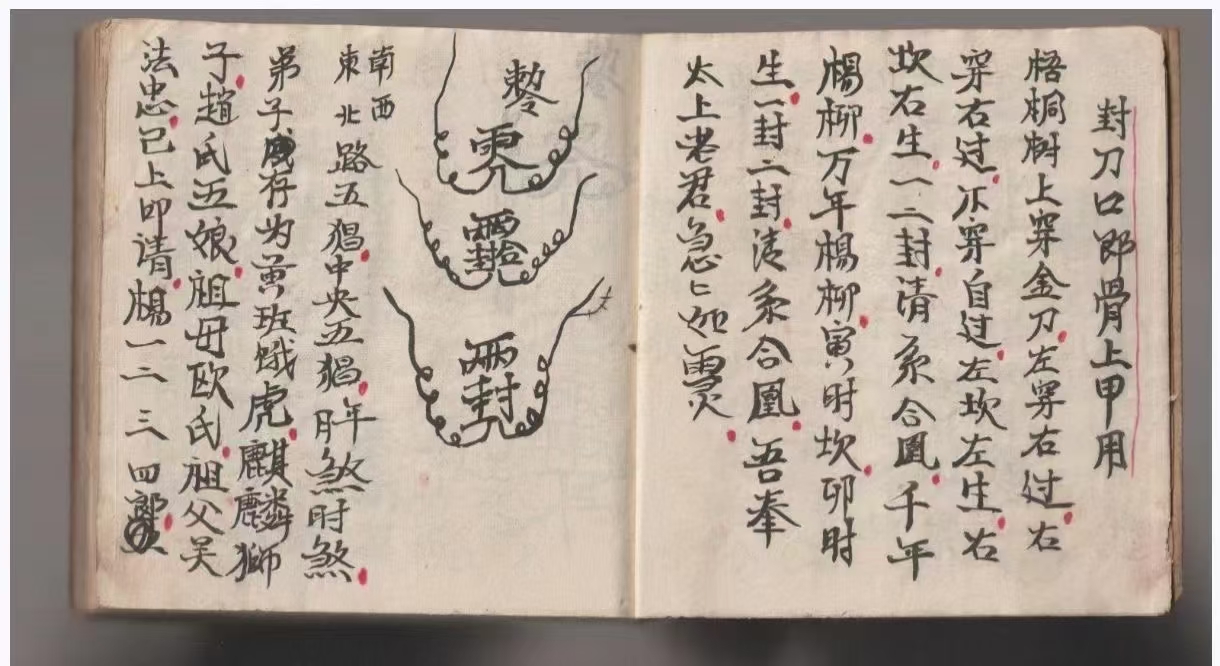 封刀口郎骨上甲用
梧桐樹上穿金刀左穿右过右
穿右过不穿自过左坎左生右
坎右生一二封清糸合凰千年
楊柳万年楊柳寅时坎卯时
生一封二封清糸合凰吾奉
太上老君急〻迎灵
南西
東北路五猖中央五猖年煞时煞
弟子存为黄班饿虎麒麟獅
子趙氏五娘祖母欧氏祖父吴
法忠已上叩请楊一二三四郎